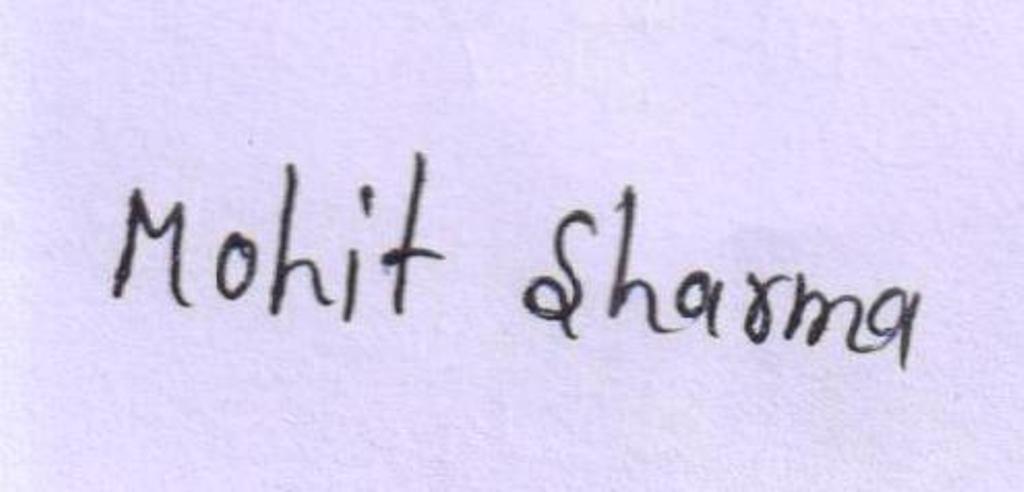 Mohit Sharma